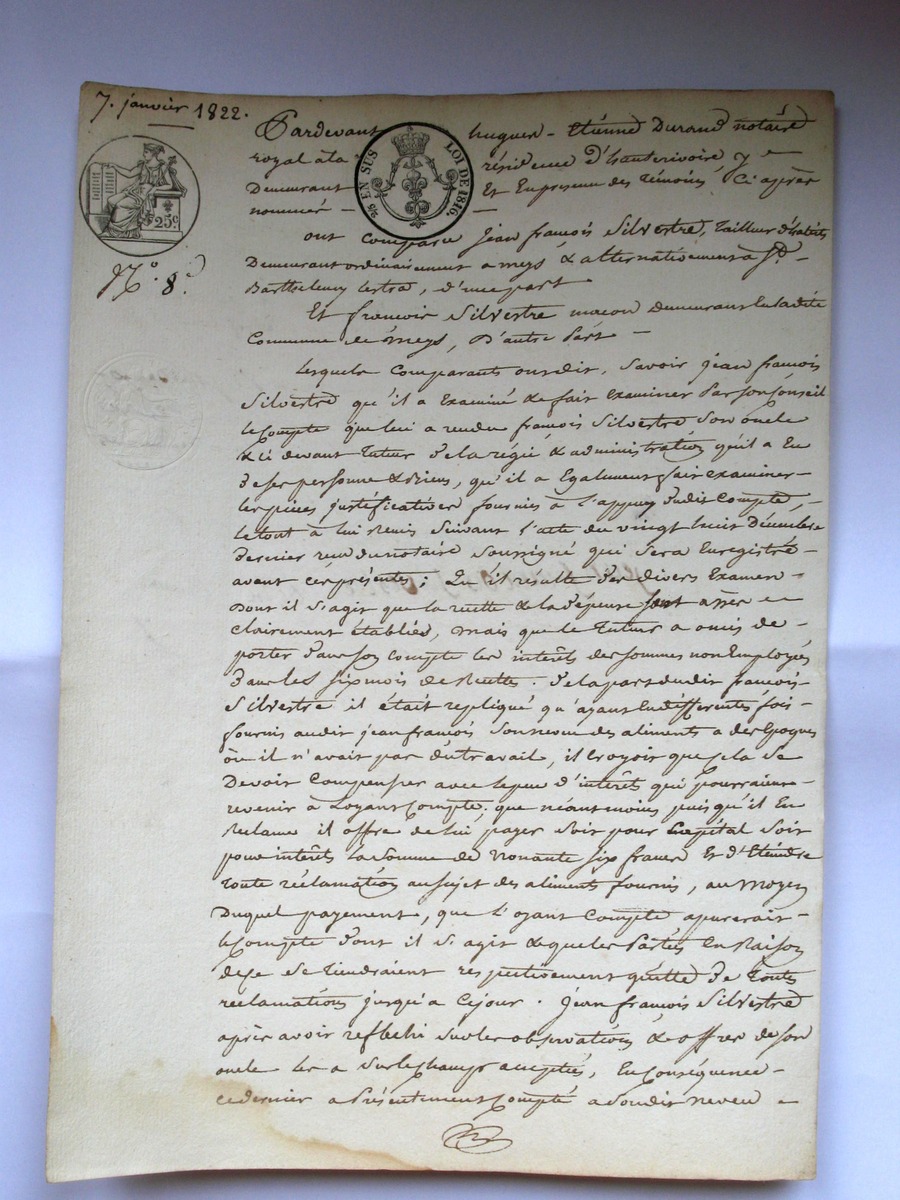 7. janvier 1822.
Pardevant hugues - Etienne Durand notaire
royal a la résidence d'hauterivoire y
Demeurant Et En presence des témoins Ci après
nommés -
25 EN SUS LOI DE 1816.
25c.
N.° 8.
ont comparu jean françois Silvestre, tailleur d'habits
Demeurant ordinairement a meys & alternativement a St.
Barthelemy lestra, d'une part
Et françois Silvestre maçon demeurant En ladite
Commune de meys, D'autre part -
Lesquels Comparants ont dit, Savoir jean francois
Silvestre qu'il a Examiné & fait Examiner par son Conseil
le Compte que lui a rendu françois Silvestre Son oncle
& ci devant tuteur de la régie & administration qu'il a Eu
de ses personne & biens, qu'il a Egalement fait examiner
les pieces justificatives fournies à l'appuy dudit Compte,
le tout à lui Remis Suivant l'acte du vingt huit Décembre
dernier reçu du notaire Soussigné qui Sera Enregistré
avant ces présentes; Qu'il résulte des divers Examens
Dont il S'agit que la recette & la Dépense sont assés
clairement établies, mais que le tuteur a omis de
porter dans son compte les intérêts des sommes non Employés
dans les Six mois de Recettes. De la part dudit françois
Silvestre il était repliqué qu'ayant En différentes fois
fourni audit jean françois Son neveu des aliments a des Epoques
où il n'avait pas du travail, il croyoit que cela Se
Devoit Compenser avec le peu d'intérêt qui pourraient
revenir à L'oyant Compte; que néantmoins puisqu'il En
Reclame il offre de lui payer Soit pour Capital Soit
pour intérêts La Somme de Nonante Six francs Et d'Eteindre
toute réclamation au sujet des aliments fournis, au moyen
Duquel payement, que L'oyant Compte apurerait
le Compte dont il S'agit & que les Parties En Raison
de ce Se tiendraient respectivement quitte de toutes
reclamations jusqu'a Ce jour. Jean françois Silvestre
après avoir reflechi Sur les observations & offres de Son
oncle les a Sur le Champ acceptées, En Conséquence
ce dernier a Présentement Compté a Son dit neveu